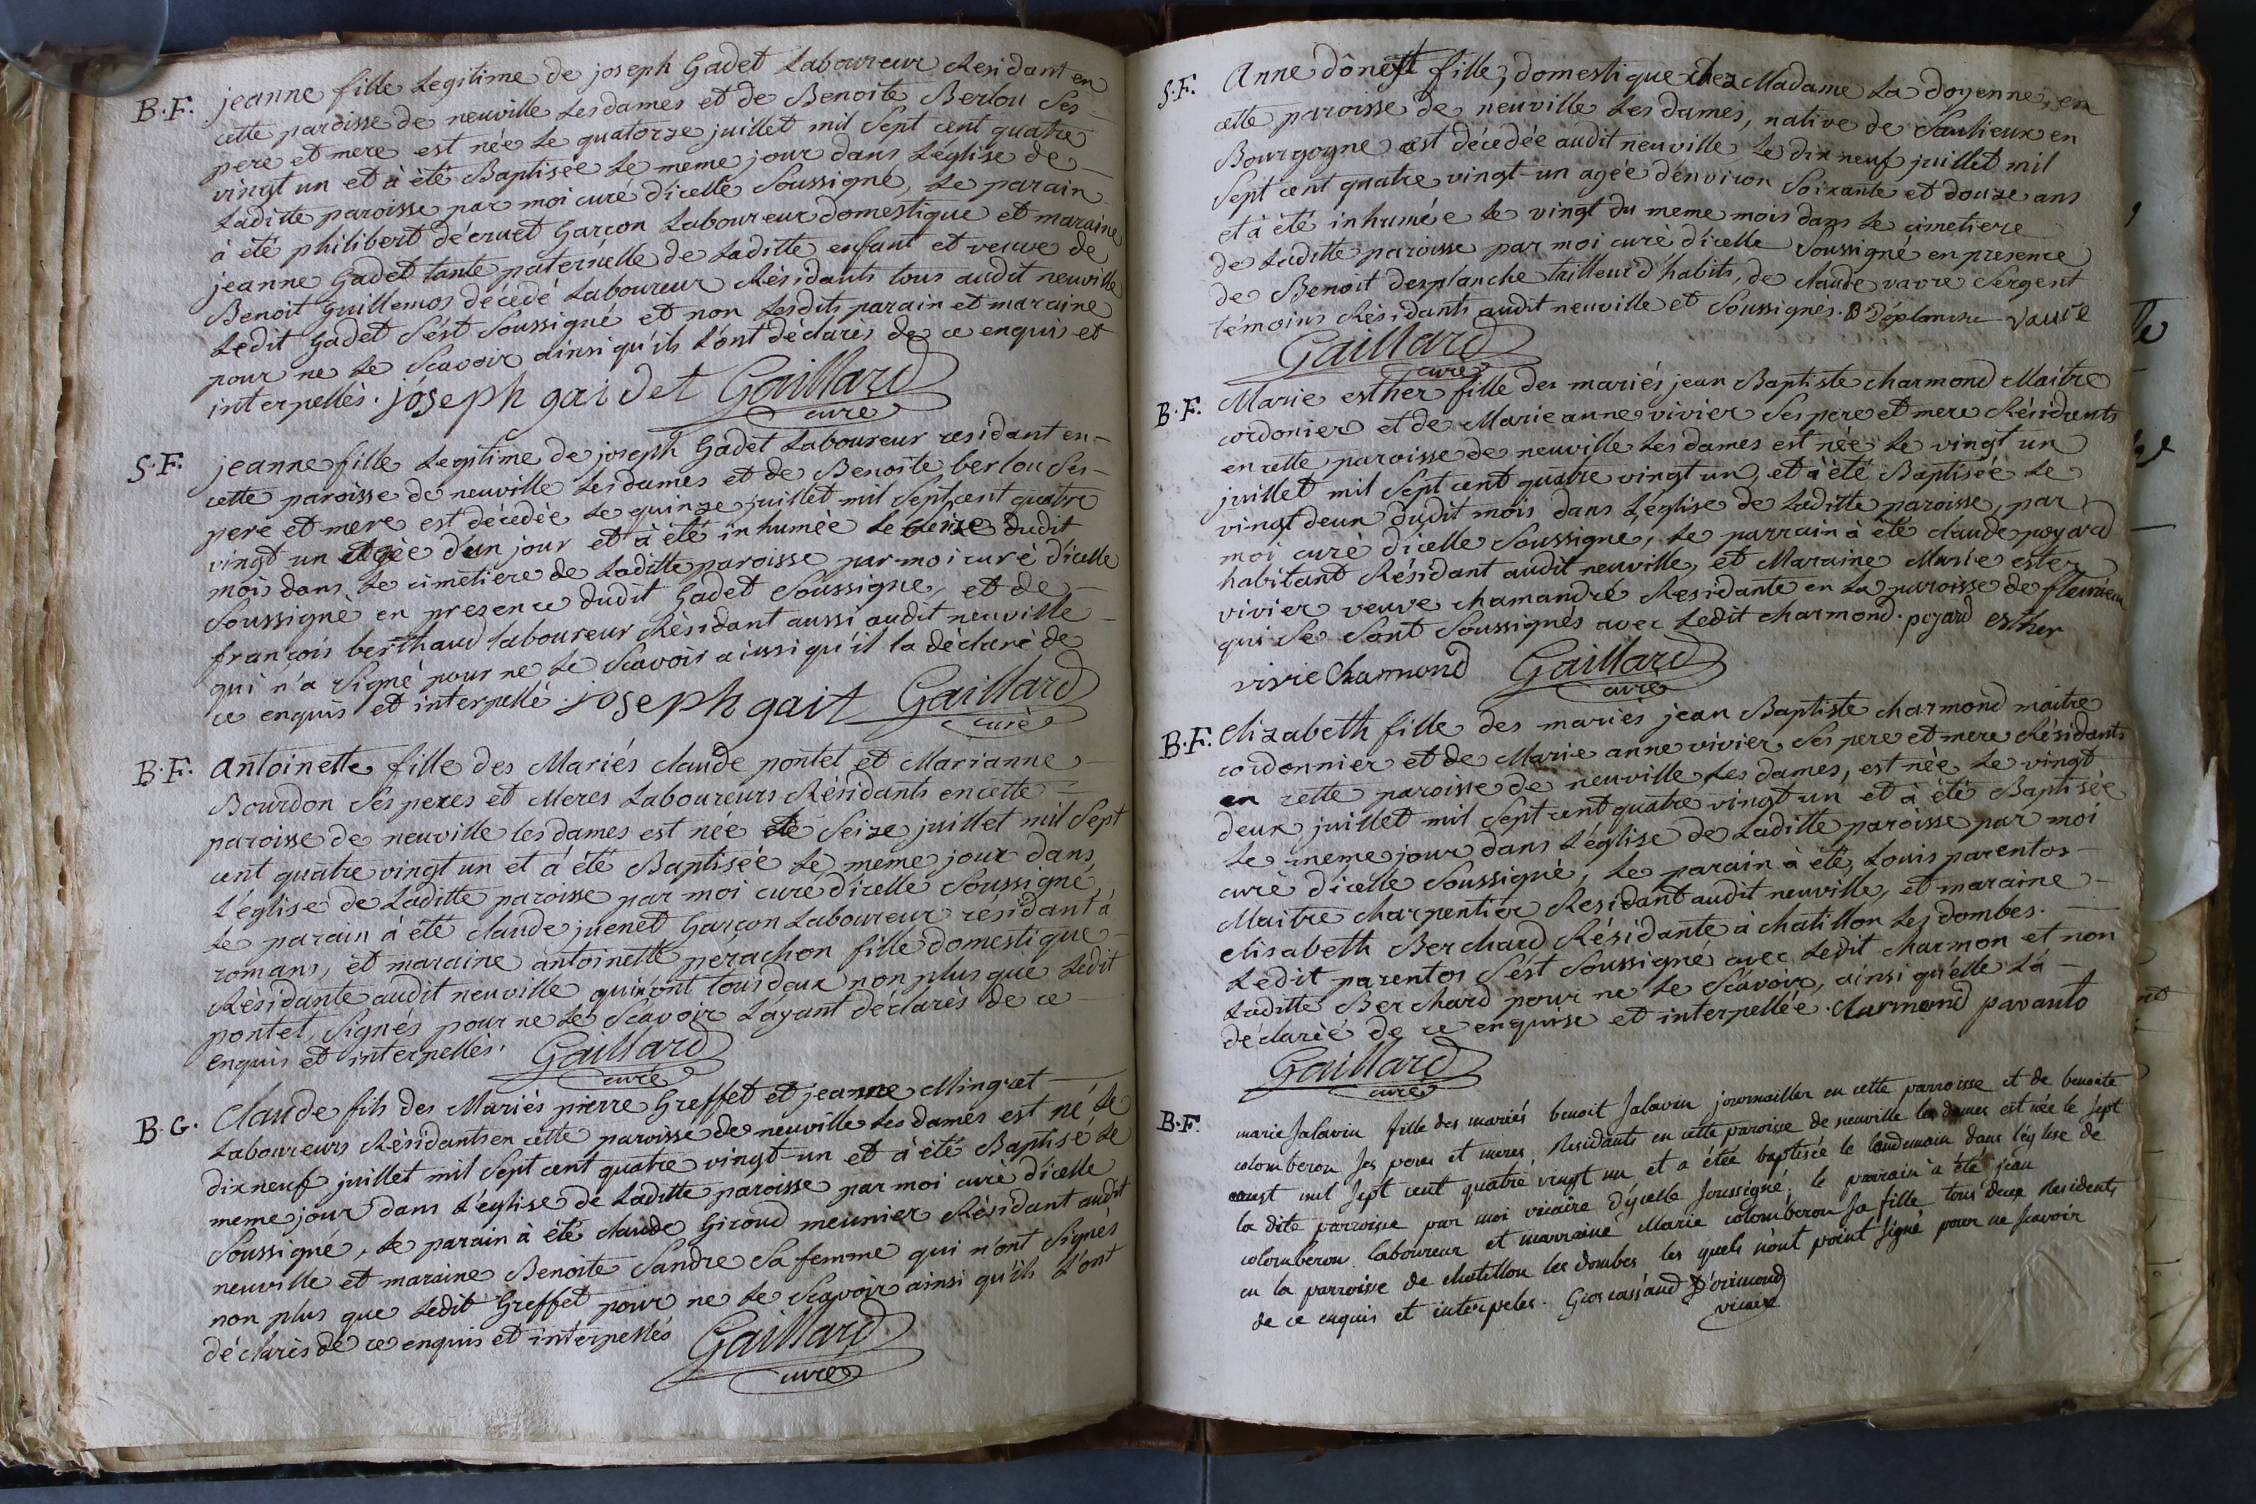 B.F. jeanne fille Legitime de joseph Gadet Laboureur Residant en
cette paroisse de neuville Les dames et de Benoite Berlou Ses
pere et mere est née Le quatorze juillet mil Sept cent quatre
vingt un et à été Baptisée Le meme jour dans L'église de
Laditte paroisse par moi curé d'icelle Soussigné, Le parain
à été philibert décruet Garçon Laboureur domestique et maraine
jeanne Gadet tante paternelle de Laditte enfant et veuve de
Benoit Guillemos décedé Laboureur Résidants tous audit neuville
Ledit Gadet S'ést Soussigné et non Lesdits parain et maraine
pour ne Le Scavoir ainsi qu'ils L'ont déclarés de ce enquis et
interpellés. joseph gai det Gaillard
curé
S.F. jeanne fille Legitime de joseph Gadet Laboureur residant en
cette paroisse de neuville Les dames et de Benoite berlou Ses
pere et mere est décedée Le quinze juillet mil Sept cent quatre
vingt un agée d'un jour et à été inhumée Le Seize dudit
mois dans Le cimetiere de Laditte paroisse par moi curé d'icelle
Soussigné en presence dudit Gadet Soussigné, et de
françois berthaud laboureur Résidant aussi audit neuville
qui n'a Signé pour ne Le Scavoir ainsi qu'il la déclaré de
ce enquis et interpellé. joseph gait Gaillard
curé
B.F. antoinette fille des Mariés claude pontet et Marianne
Bourdon Ses peres et Meres Laboureurs Résidants en cette
paroisse de neuville les dames est née Le Seize juillet mil Sept
cent quatre vingt un et à été Baptisée Le meme jour dans
L'église de Laditte paroisse par moi curé d'icelle Soussigné
Le parain à été claude juenet Garçon Laboureur résidant à
romans, et maraine antoinette pérachon fille domestique
Résidante audit neuville qui n'ont tous deux non plus que Ledit
pontet, Signés pour ne Le Scavoir L'ayant déclarés de ce
enquis et interpellés. Gaillard
curé
B.G. Claude fils des Mariés pierre Greffet et jeanne Mingret
Laboureurs Résidants en cette paroisse de neuville Les dames est né Le
dix neuf juillet mil Sept cent quatre vingt un et à été Baptisé Le
meme jour dans L'église de Laditte paroisse par moi curé d'icelle
Soussigné, Le parain à été claude Giroud meunier Résidant audit
neuville et maraine Benoite Sandre Sa femme qui n'ont Signés
non plus que Ledit Greffet pour ne Le Scavoir ainsi qu'ils L'ont
déclarés de ce enquis et interpellés Gaillard
curé
S.F. Anne fille, domestique chez Madame La doyenne, en
cette paroisse de neuville Les dames, native de Saulieux en
Bourgogne est décedée audit neuville Le dix neuf juillet mil
Sept cent quatre vingt un agée d'environ Soixante et douze ans
et à été inhumée Le vingt du meme mois dans Le cimetiere
de Laditte paroisse par moi curé d'icelle Soussigné en presence
de Benoit desplanche tailleur d'habits, de claude vavre Sergent
témoins Résidants audit neuville et Soussignés. B Déplanche vavre
Gaillard
curé
B.F. Marie esther fille des mariés jean Baptiste charmond Maitre
cordonier et de Marie anne vivier Ses pere et mere Résidants
en cette paroisse de neuville Les dames est née Le vingt un
juillet mil Sept cent quatre vingt un, et à été Baptisée Le
vingt deux dudit mois dans L'église de Laditte paroisse, par
moi curé d'icelle Soussigné, Le parrain à été claude poyard
habitant Résidant audit neuville, et Maraine Marie ester
vivier veuve chamandré Residante en La paroisse de fleurieux
qui Se Sont Soussignés avec Ledit charmond. poyard esther
vivie Charmond Gaillard
curé
B.F. Elizabeth fille des mariés jean Baptiste charmond maitre
cordonnier et de Marie anne vivier Ses pere et mere Résidants
en cette paroisse de neuville Les dames, est née Le vingt
deux juillet mil Sept cent quatre vingt un et à été Baptisée
Le meme jour dans L'église de Laditte paroisse par moi
curé d'icelle Soussigné, Le parain à été Louis parentos
Maitre charpentier Residant audit neuville, et maraine
elisabeth Berchard Résidante à chatillon Les dombes.
Ledit parentos S'ést Soussigné avec Ledit charmon et non
Laditte Berchard pour ne Le Scavoir, ainsi qu'elle L'a
déclarée de ce enquise et interpellée. Charmond paranto
Gaillard
curé
B.F. marie Jalavin fille des mariés benoit Jalavin journaillier en cette parroisse et de benoite
colomberon Ses peres et meres Residants en cette paroisse de neuville les dames est née le sept
aoust mil Sept cent quatre vingt un et a étée baptisée le landemain dans l'église de
la dite parroisse par moi vicaire d'ycelle Soussigné; le parrain a été jean
colomberon laboureur et marraine Marie colomberon Sa fille tous deux Residents
en la parroisse de chatillon les dombes les quels n'ont point Signé pour ne Scavoir
de ce enquis et interpelés.
vicaire